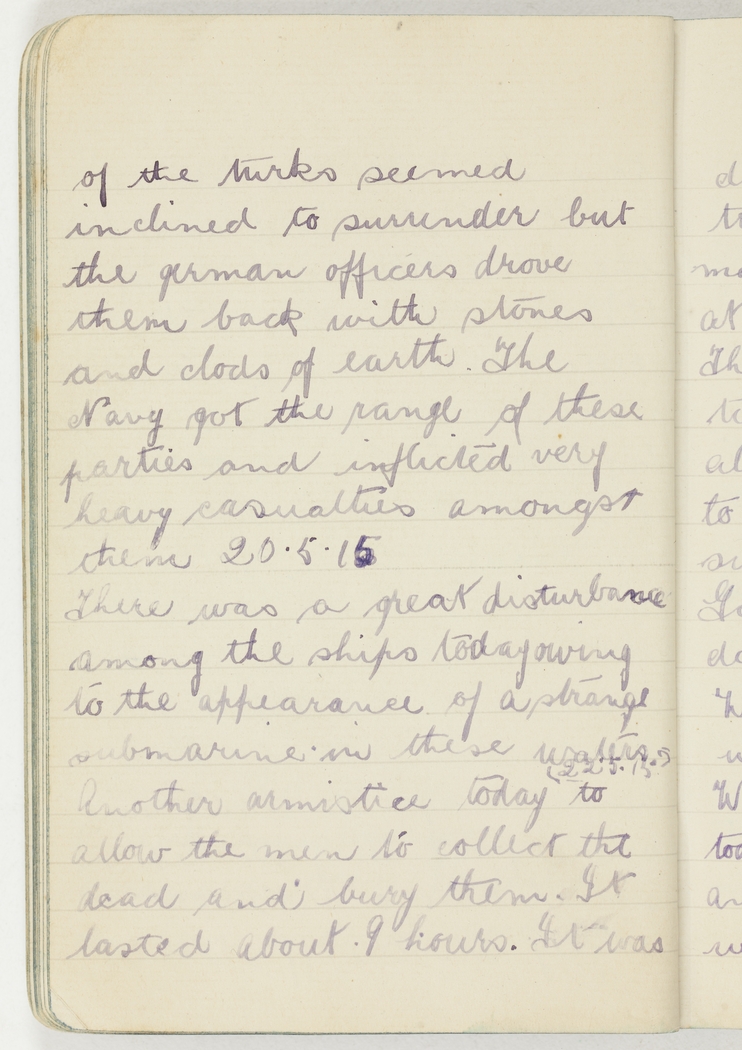 of the turks seemed
inclined to surrender but
the german officers drove
them back with stones
and clods of earth. The
Navy got the range of these
parties and inflicted very
heavy casualties amongst
them 20.5.15
There was a great disturbance
among the ships today owing
to the appearance of a strange
submarine in these waters
(22.5.15.)
Another armistice today to
allow the men to collect the
dead and bury them. It
lasted about 9 hours. It was